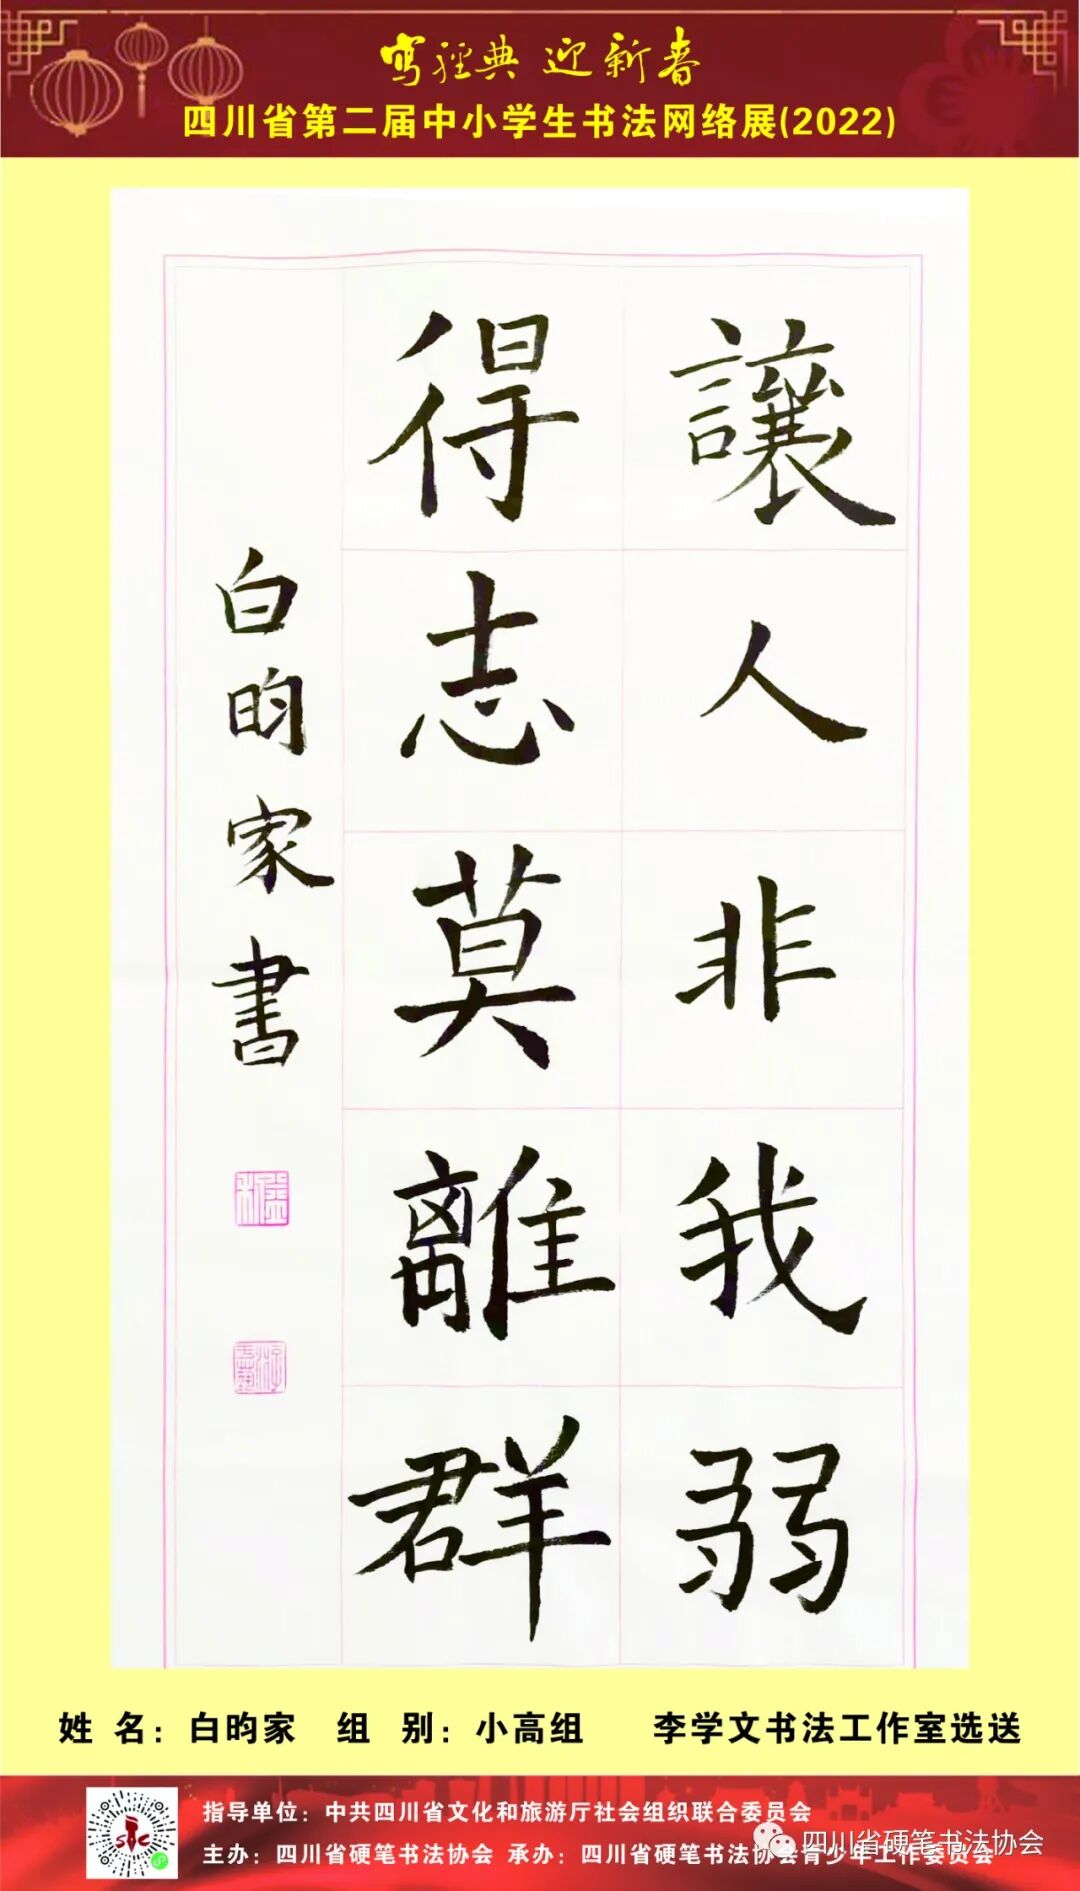 写经典 迎新春
四川省第二届中小学生书法网络展(2022)
讓人非我弱
得志莫離群
白昀家書
姓 名：白昀家 组 别：小高组 李学文书法工作室选送
指导单位：中共四川省文化和旅游厅社会组织联合委员会
主办：四川省硬笔书法协会 承办：四川省硬笔书法协会青少年工作委员会
四川省硬笔书法协会